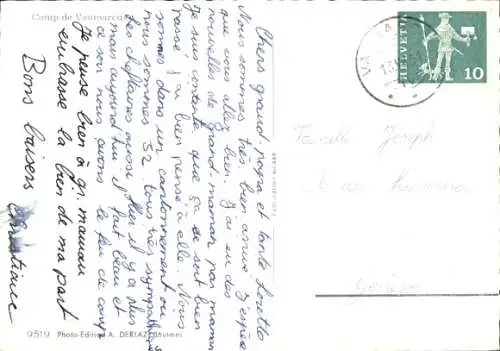 Camp de Vaumarcus
Chers grand-papa et tante Loretto
Nous sommes très bien arrivé J'espère
que vous allez bien. J'ai eu des
nouvelles de Grand-maman par maman
Je suis contente que ça se soit bien
passé. J'ai bien pensé à elle. Nous
sommes dans un cantonnement ou
nous sommes 32. tous très sympathiques
Les cheftaines aussi. Hier il y a plu
mais aujourd'hui il fait beau et
ce soir nous avons le feu de camp
Je pense bien à gr. maman
embrasse la bien de ma part
Bons baisers
Christiane
HELVETIA
10
Famille Joseph
Genève
9519 Photo-Edition A. DERIAZ